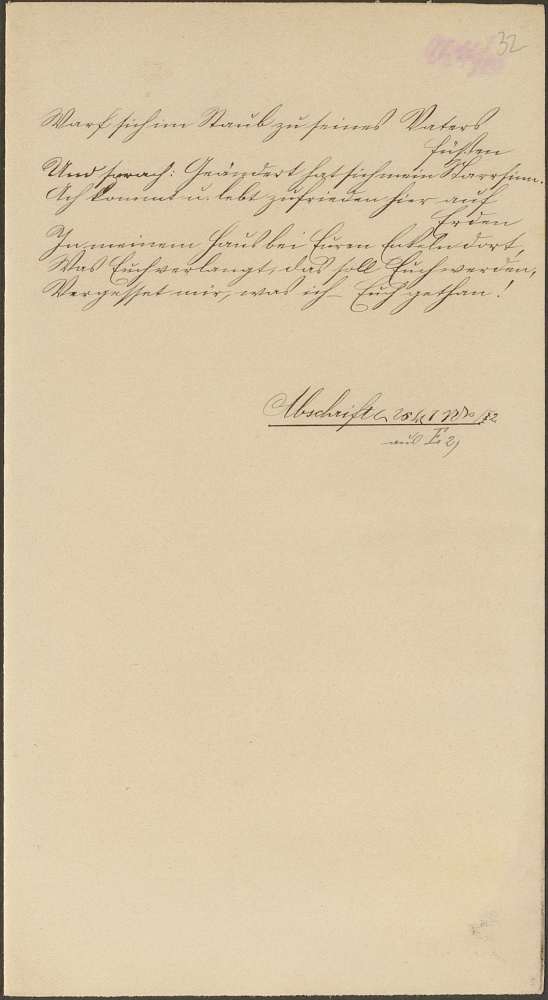 32
Warf sich im Staub zu seines Vaters
Füßen
Und sprach: Geändert hat sich mein Starrsinn.
Ach kommt u. lebt zufrieden hier auf
Erden
In meinem Haus bei Euren Enkeln dort,
Was Euch verlangt, das soll Euch werden,
Vergesset mir, was ich Euch gethan!
Abschrift
aus E 2,